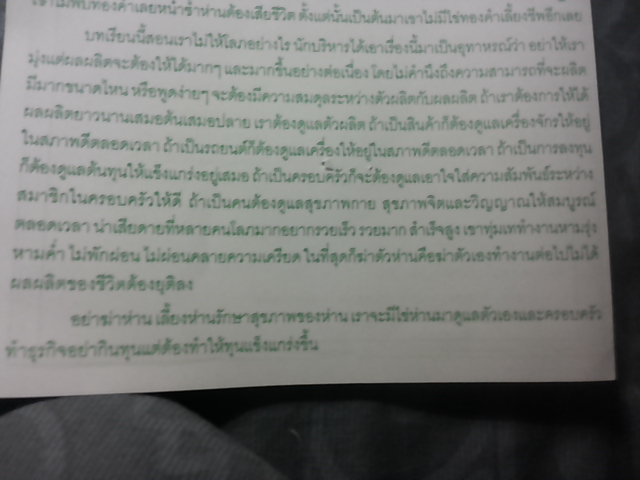 เขาไม่พบทองคำเลยหนำซ้ำห่านต้องเสียชีวิต ตั้งแต่นั้นเป็นต้นมาเขาไม่มีไข่ทองคำเลี้ยงชีพอีกเลย
บทเรียนนี้สอนเราไม่ให้โลภอย่างไร นักบริหารได้เอาเรื่องนี้มาเป็นอุทาหรณ์ว่า อย่าให้เรา
มุ่งแต่ผลผลิตจะต้องให้ได้มากๆ และมากขึ้นอย่างต่อเนื่อง โดยไม่คำนึงถึงความสามารถที่จะผลิต
มีมากขนาดไหน หรือพูดง่ายๆ จะต้องมีความสมดุลระหว่างตัวผลิตกับผลผลิต ถ้าเราต้องการให้ได้
ผลผลิตยาวนานเสมอต้นเสมอปลาย เราต้องดูแลตัวผลิต ถ้าเป็นสินค้าก็ต้องดูแลเครื่องจักรให้อยู่
ในสภาพดีตลอดเวลา ถ้าเป็นรถยนต์ก็ต้องดูแลเครื่องให้อยู่ในสภาพดีตลอดเวลา ถ้าเป็นการลงทุน
ก็ต้องดูแลต้นทุนให้แข็งแกร่งอยู่เสมอ ถ้าเป็นครอบครัวก็จะต้องดูแลเอาใจใส่ความสัมพันธ์ระหว่าง
สมาชิกในครอบครัวให้ดี ถ้าเป็นคนต้องดูแลสุขภาพกาย สุขภาพจิตและวิญญาณให้สมบูรณ์
ตลอดเวลา น่าเสียดายที่หลายคนโลภมากอยากรวยเร็ว รวยมาก สำเร็จสูง เขาทุ่มเททำงานหามรุ่ง
หามค่ำ ไม่พักผ่อน ไม่ผ่อนคลายความเครียด ในที่สุดก็ฆ่าตัวห่านคือฆ่าตัวเองทำงานต่อไปไม่ได้
ผลผลิตของชีวิตต้องยุติลง
อย่าฆ่าห่าน เลี้ยงห่านรักษาสุขภาพของห่าน เราจะมีไข่ห่านมาดูแลตัวเองและครอบครัว
ทำธุรกิจอย่ากินทุนแต่ต้องทำให้ทุนแข็งแกร่งขึ้น